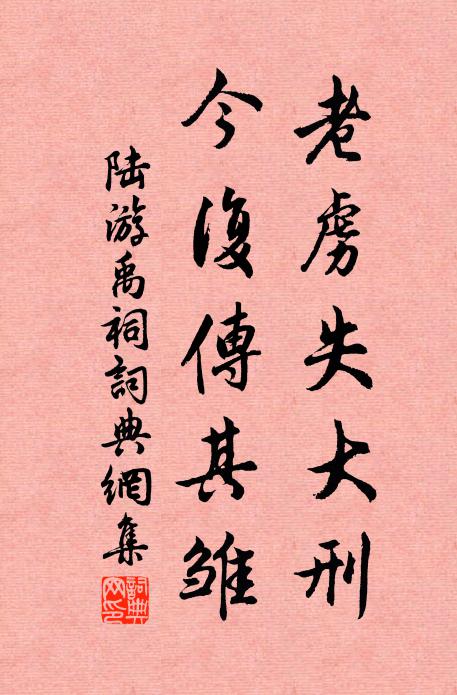 老虜失大刑
今復傳其雛
陸游禹祠詞典網集
詞典网印